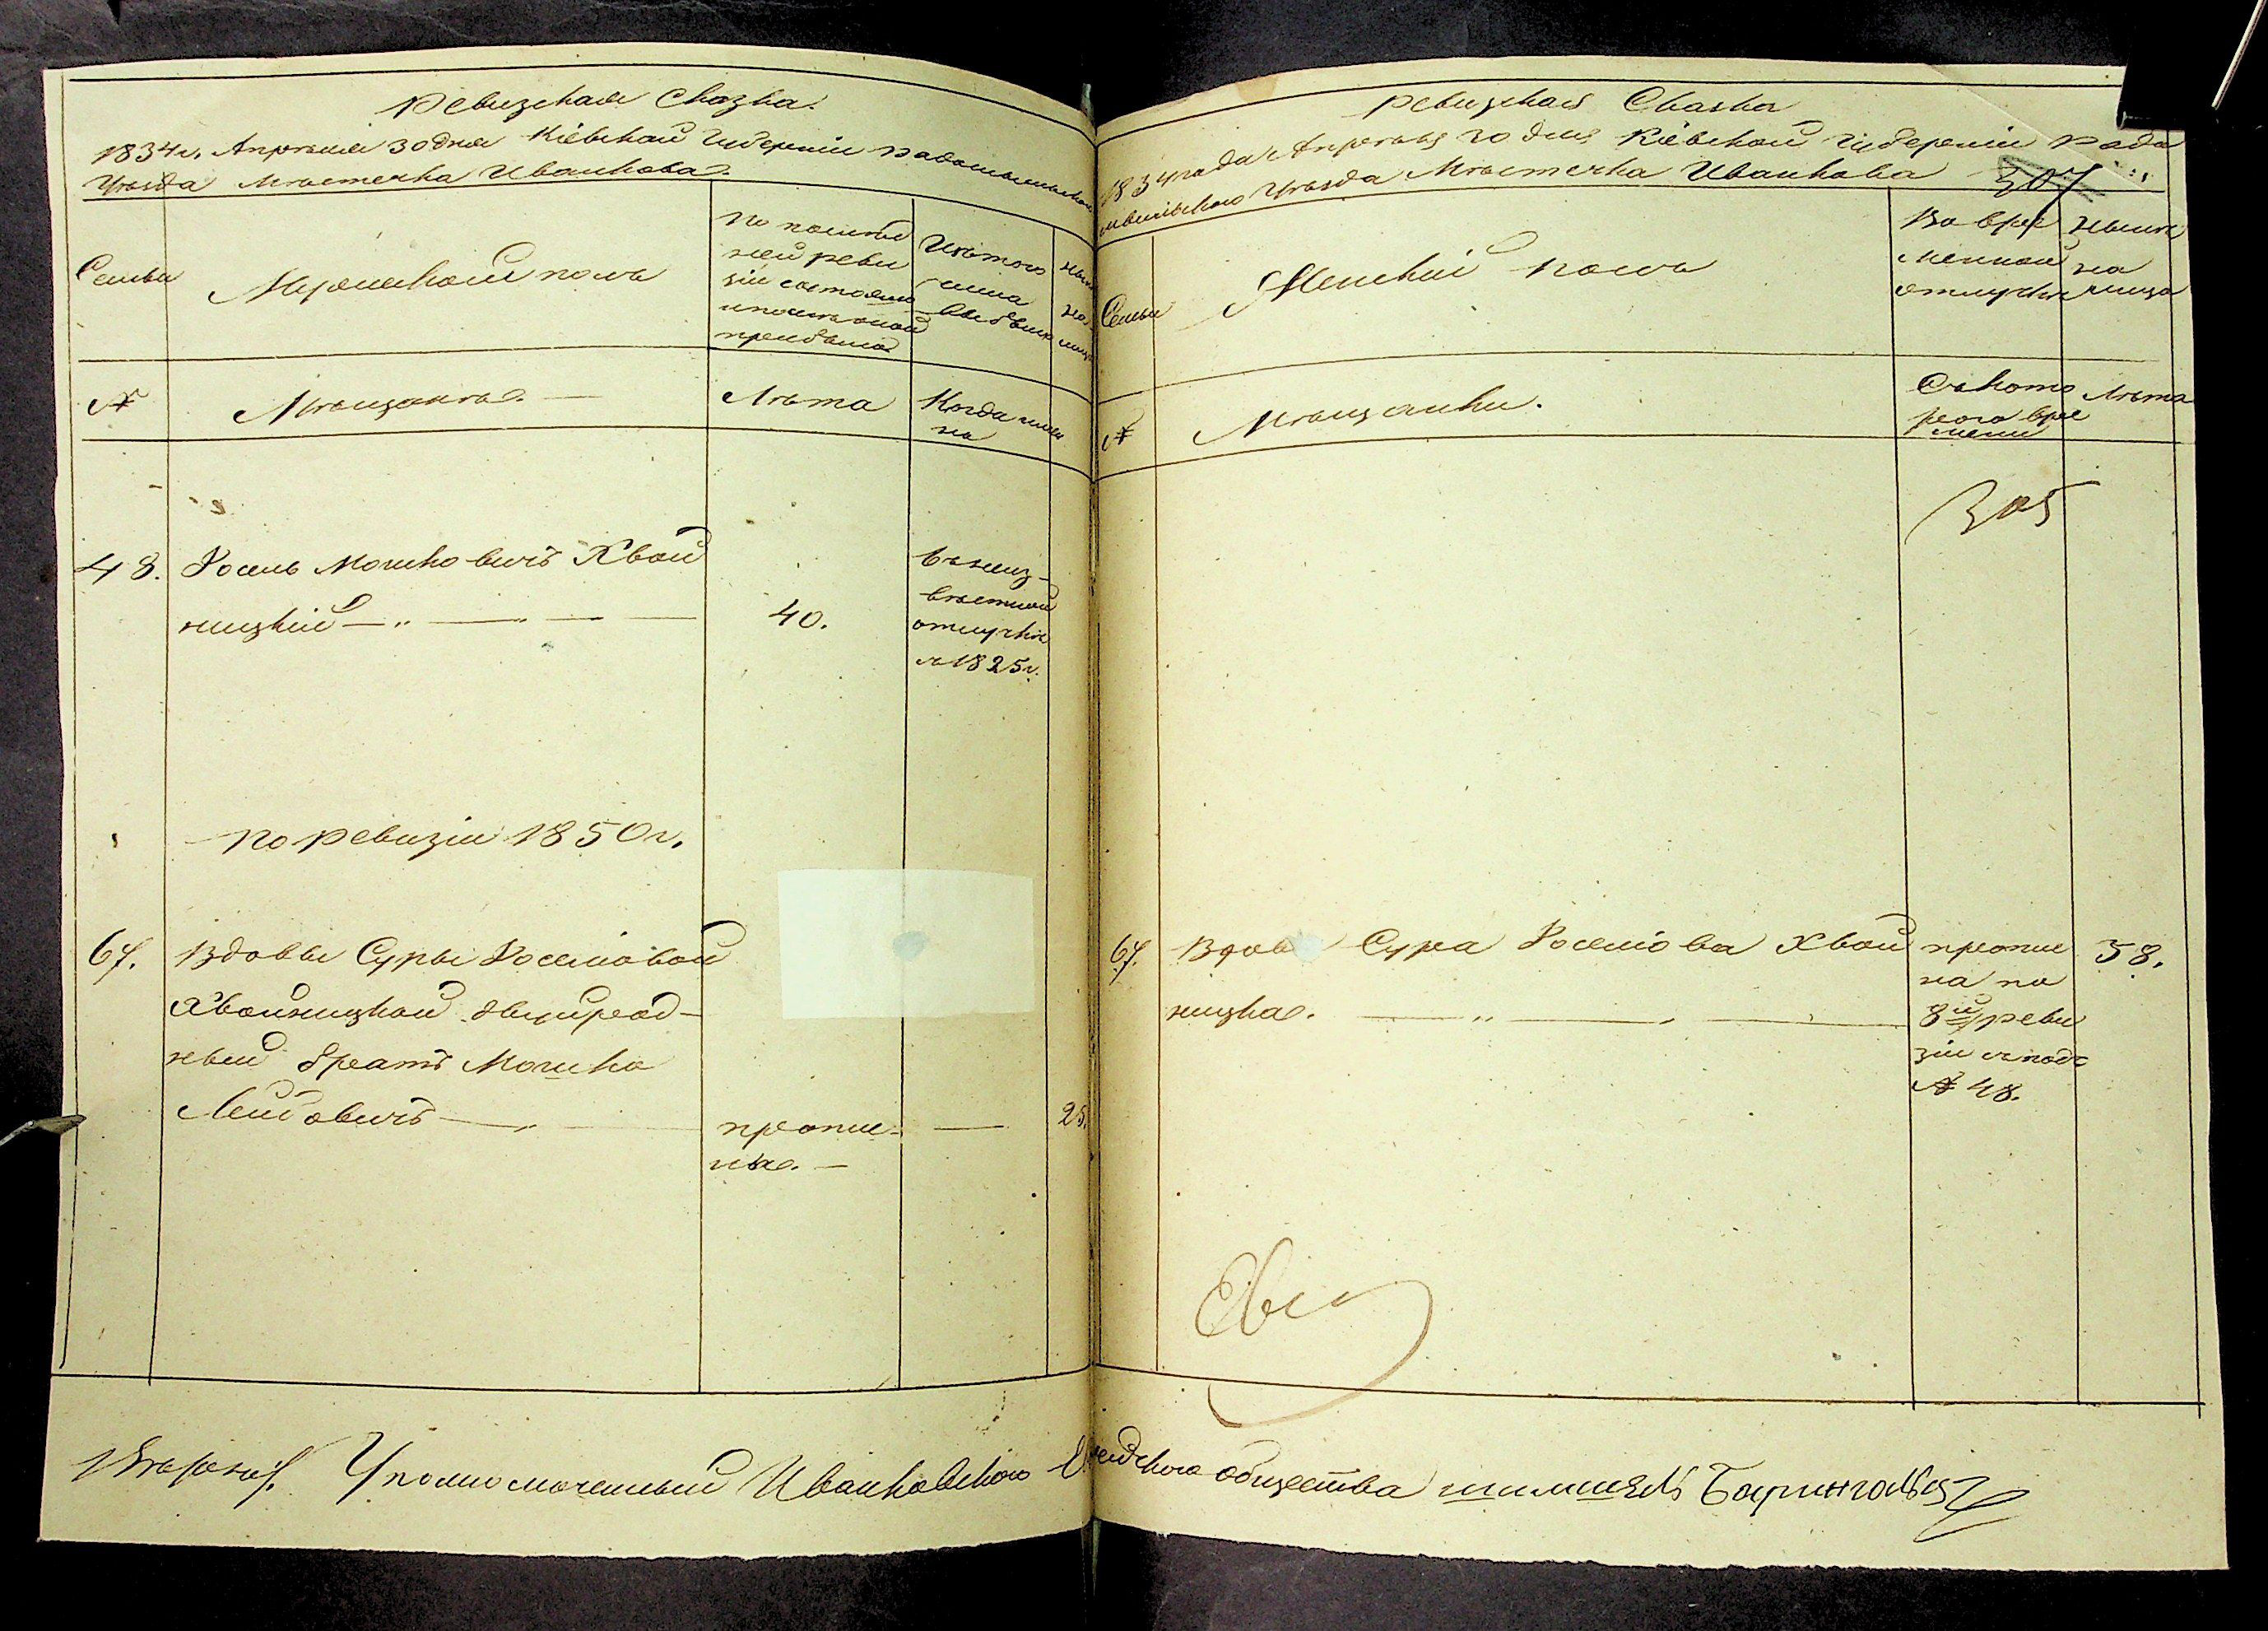 Ревизская Сказка.
1834г. Апрѣля 30 дня Кіевской Губерніи Радомысльского
Уѣзда Мѣстечка Иванкова.
Семьи
Мужеской полъ
По послѣд
ней реви
зіи состояло
и послѣ оной
прибыло
Изъ того
числа
выбыло
ны
на
лицо
№
Мѣщанѣ.
Лѣта
Когда имен
но
48.
Іосель Мошковичъ Хвой
ницкій
40.
въ неиз-
вѣстной
отлучкѣ
съ 1825г.
По ревизіи 1850г.
67.
Вдовы Суры Іоселіовой
Хвойницкой двоюрод-
ный братъ Мошко
Лейбовичъ
пропи-
щен.
25.
Уполномоченный Иванковского
Ревизская Сказка
1834 года Апрѣля 30 дня Кіевской Губерніи Радо
мысльского Уѣзда Мѣстечка Иванкова
307
Семьи
Женскій полъ
Во вре
менной
отлучкѣ
нынѣ
на
лицо
№
Мѣщанки.
Съ кото
рого вре
мени
Лѣта
305
67.
Вдова Сура Іоселіова Хвой
ницка.
пропис
на по
8й реви
зіи подъ
№ 48.
58.
Еврейского общества Шимшелъ